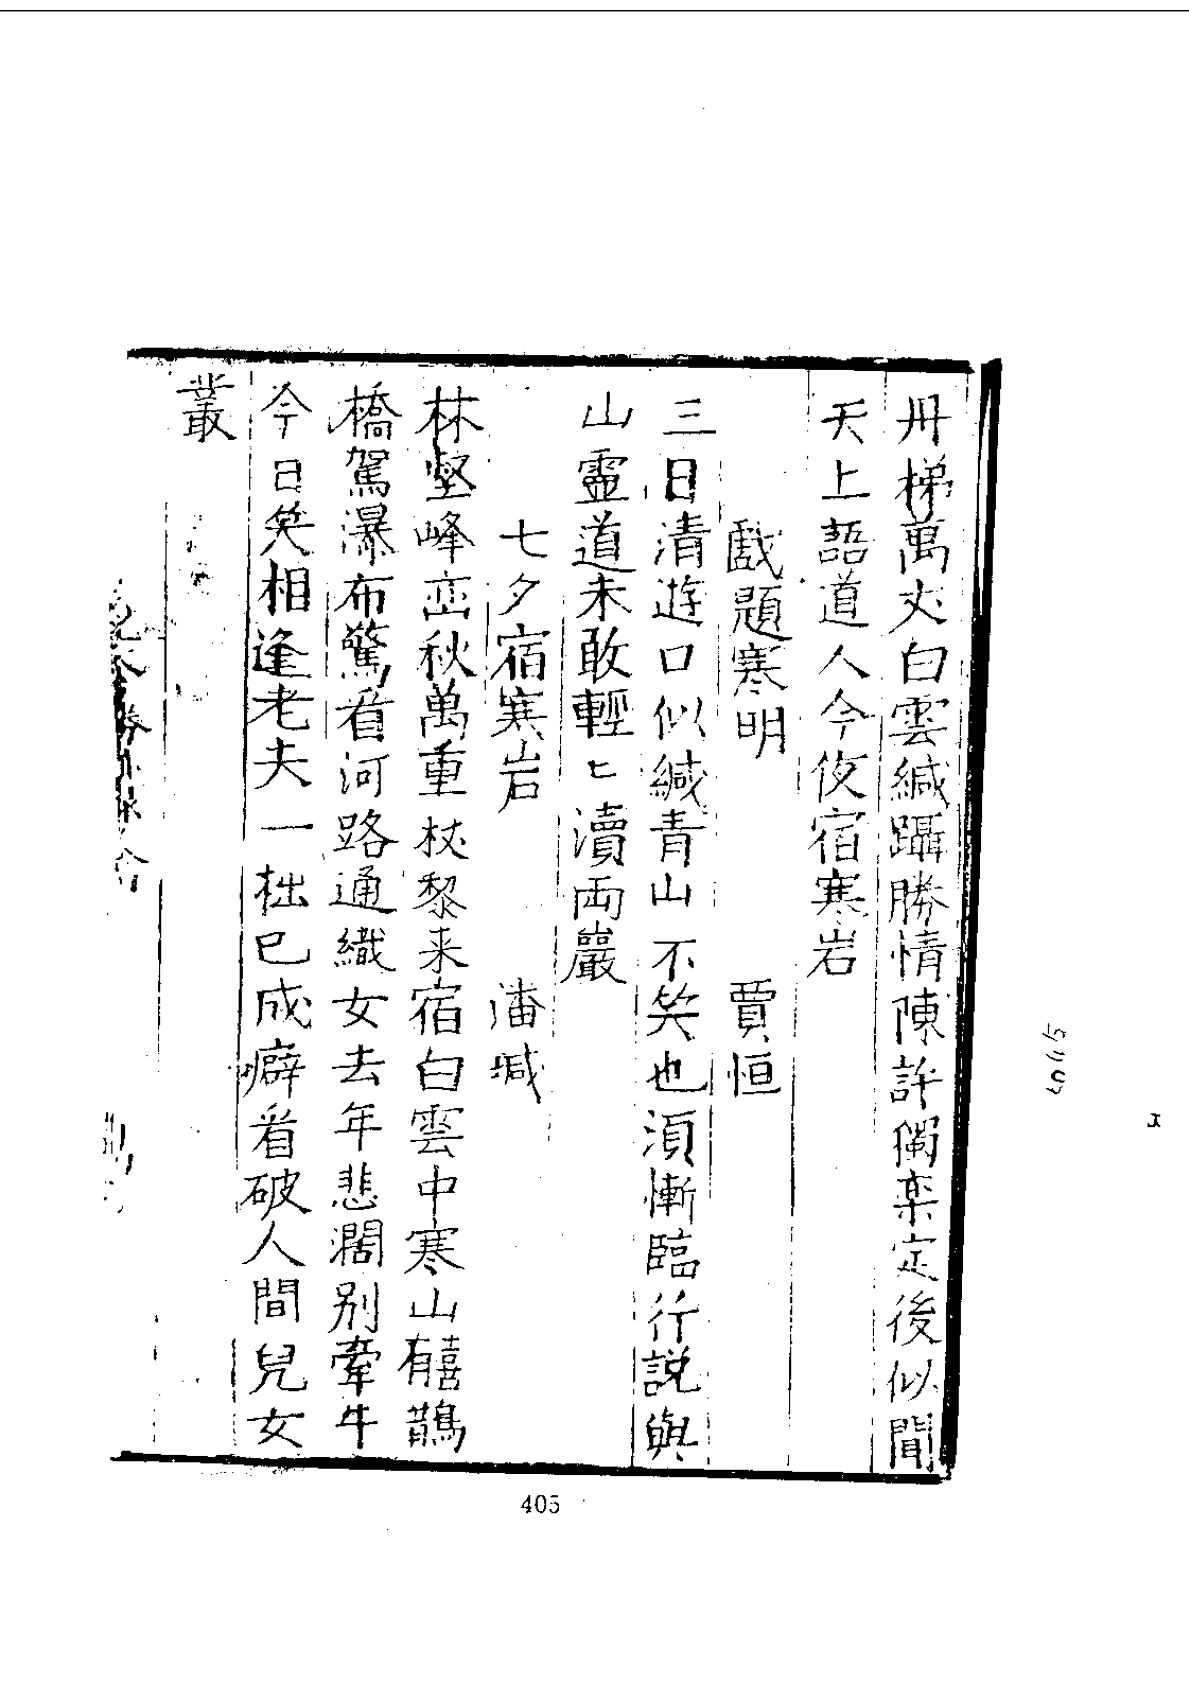 丹梯萬丈白雲緘躡勝情陳許獨乗定後似聞
天上語道人今夜宿寒岩
戲題寒明 賈恒
三日清遊口似緘青山不笑也湏慚臨行説與
山靈道未敢輕匕瀆兩巖
七夕宿寒岩 潘瑊
林壑峰峦秋萬重杖藜来宿白雲中寒山有鵲
橋駕瀑布驚看河路通織女去年悲濶别牽牛
今日笑相逢老夫一拙已成癖看破人間兒女
叢
405